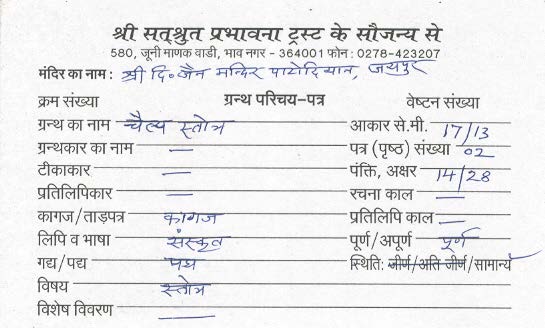 श्री सत्श्रुत प्रभावना ट्रस्ट के सौजन्य से
580, जूनी माणक वाडी, भाव नगर - 364001 फोन : 0278-423207
मंदिर का नाम : श्री दि॰ जैन मन्दिर पाटोदियान, जयपुर
क्रम संख्या ग्रन्थ परिचय-पत्र वेष्टन संख्या
ग्रन्थ का नाम चैत्य स्तोत्र आकार से.मी. 17/13
ग्रन्थकार का नाम — पत्र (पृष्ठ) संख्या 02
टीकाकार — पंक्ति, अक्षर 14/28
प्रतिलिपिकार — रचना काल —
कागज/ताड़पत्र कागज प्रतिलिपि काल —
लिपि व भाषा संस्कृत पूर्ण/अपूर्ण पूर्ण
गद्य/पद्य पद्य स्थिति: जीर्ण/अति जीर्ण/सामान्य
विषय स्तोत्र
विशेष विवरण —